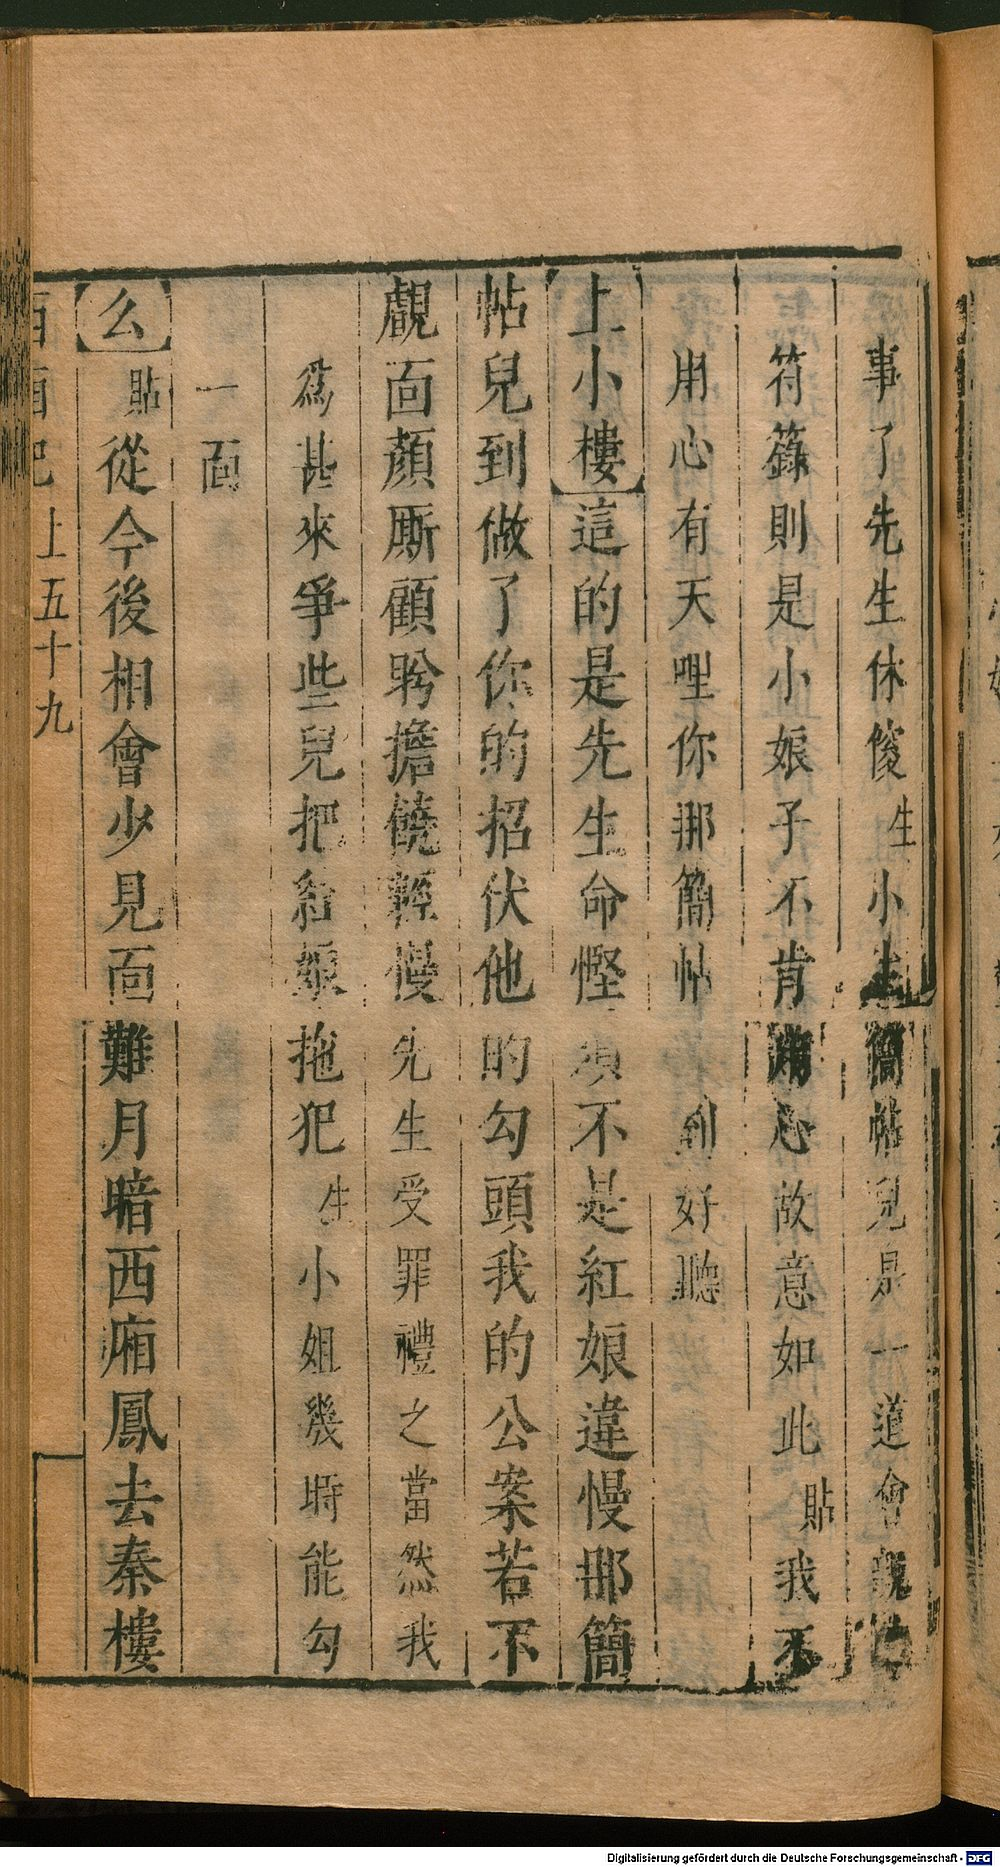 事了先生休傻生小生簡帖兒是一道會親的
符籙則是小娘子不肯用心故意如此貼我不
用心有天哩你那簡帖到好聽
【上小樓】這的是先生命慳須不是紅娘違慢那簡
帖兒到做了你的招伏他的勾頭我的公案若不
覷面顏厮顧盻擔饒輕慢先生受罪禮之當然我
爲甚來爭些兒把紅娘拖犯生小姐幾時能勾
一面
【么】貼從今後相會少見面難月暗西廂鳳去秦樓
西廂記 上五十九
Digitalisierung gefördert durch die Deutsche Forschungsgemeinschaft - DFG